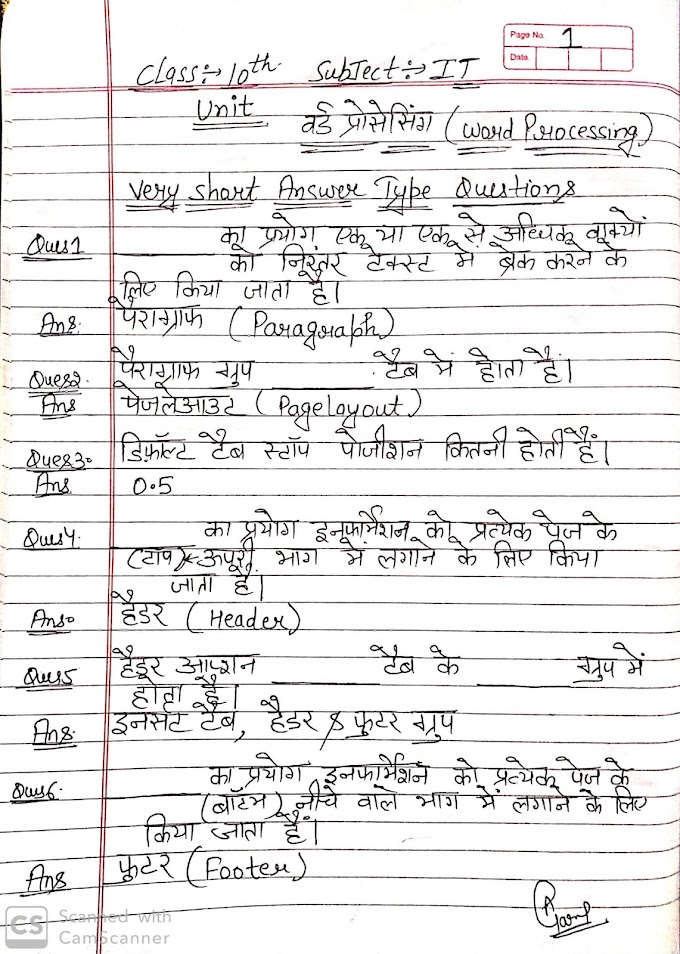 Page No. 1
Date.
Class:→ 10th. Subject:→ IT
Unit वर्ड प्रोसेसिंग (Word Processing)
Very short Answer Type Questions
Ques1 ________ का प्रयोग एक या एक से अधिक वाक्यों
को निरंतर टेक्स्ट में ब्रेक करने के
लिए किया जाता है।
Ans. पैराग्राफ (Paragraph)
Ques2. पैराग्राफ ग्रुप ________ टैब में होता है।
Ans पेजलेआउट (Pagelayout)
Ques3. डिफ़ॉल्ट टैब स्टॉप पोजीशन कितनी होती हैं।
Ans 0.5
Ques4. ________ का प्रयोग इनफार्मेशन को प्रत्येक पेज के
(टॉप) ऊपरी भाग में लगाने के लिए किया
जाता है।
Ans. हैडर (Header)
Ques5 हैडर आप्शन ________ टैब के ________ ग्रुप में
होता है।
Ans. इनसर्ट टैब, हैडर & फुटर ग्रुप
Ques6. ________ का प्रयोग इनफार्मेशन को प्रत्येक पेज के
(बॉटम) नीचे वाले भाग में लगाने के लिए
किया जाता है।
Ans फुटर (Footer)
CS Scanned with
CamScanner